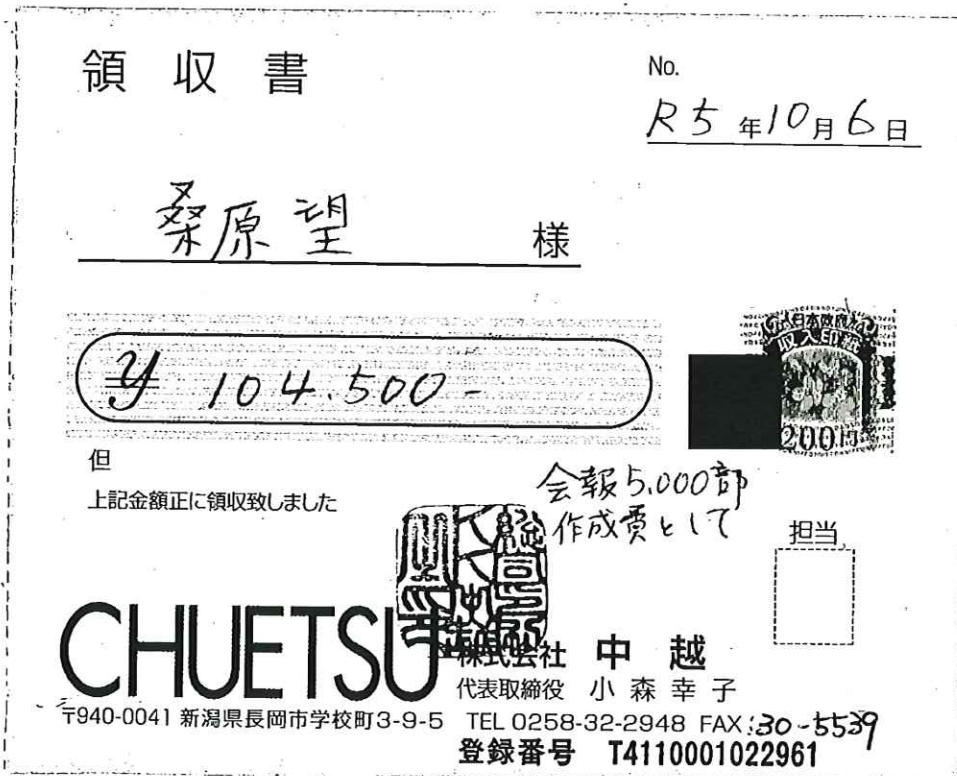 領収書
No.
R5年10月6日
桑原望 様
¥ 104.500-
日本政府
収入印紙
200円
但
上記金額正に領収致しました
会報5.000部
作成費として
担当
CHUETSU
株式会社 中越
代表取締役 小森幸子
〒940-0041 新潟県長岡市学校町3-9-5 TEL 0258-32-2948 FAX:30-5539
登録番号 T4110001022961